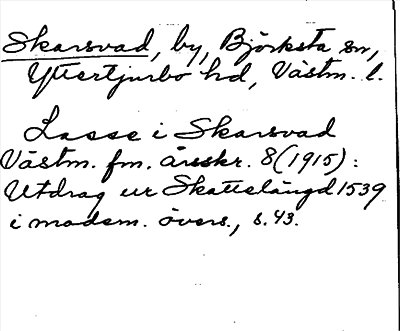 Skarsvad, by, Björksta sn,
Yttertjurbo hd, Västm. l.
Lasse i Skarsvad
Västm. fm. årsskr. 8 (1915):
Utdrag ur Skattelängd 1539
i modern. övers., s. 43.